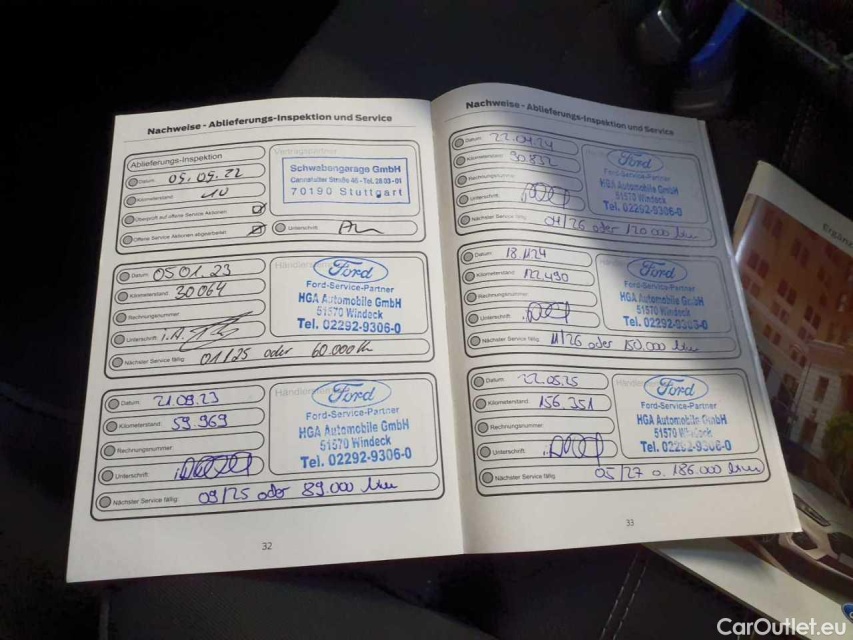 Nachweise - Ablieferungs-Inspektion und Service
Ablieferungs-Inspektion
Datum: 05.09.22
Kilometerstand: 10
Überprüft auf offene Service Aktionen:
Offene Service Aktionen abgearbeitet:
Unterschrift:
Schwabengarage GmbH
70190 Stuttgart
Datum: 05.01.23
Kilometerstand: 30064
Rechnungsnummer:
Unterschrift: i.A.
Nächster Service fällig: 01/25 oder 60.000 Km
Ford
Ford-Service-Partner
HGA Automobile GmbH
51570 Windeck
Tel. 02292-9306-0
Datum: 21.09.23
Kilometerstand: 59.969
Rechnungsnummer:
Unterschrift:
Nächster Service fällig: 09/25 oder 89.000 km
Ford
Ford-Service-Partner
HGA Automobile GmbH
51570 Windeck
Tel. 02292-9306-0
32
Nachweise - Ablieferungs-Inspektion und Service
Datum: 22.04.24
Kilometerstand:
Rechnungsnummer:
Unterschrift:
Nächster Service fällig: 04/26 oder 120.000 km
Ford
Ford-Service-Partner
HGA Automobile GmbH
51570 Windeck
Tel. 02292-9306-0
Datum:
Kilometerstand: 122.490
Rechnungsnummer:
Unterschrift:
Nächster Service fällig: 11/26 oder 150.000 km
Ford
Ford-Service-Partner
HGA Automobile GmbH
51570 Windeck
Tel. 02292-9306-0
Datum: 22.05.25
Kilometerstand: 156.351
Rechnungsnummer:
Unterschrift:
Nächster Service fällig: 05/27 o. 186.000 km
Ford
Ford-Service-Partner
HGA Automobile GmbH
51570 Windeck
Tel. 02292-9306-0
33
CarOutlet.eu